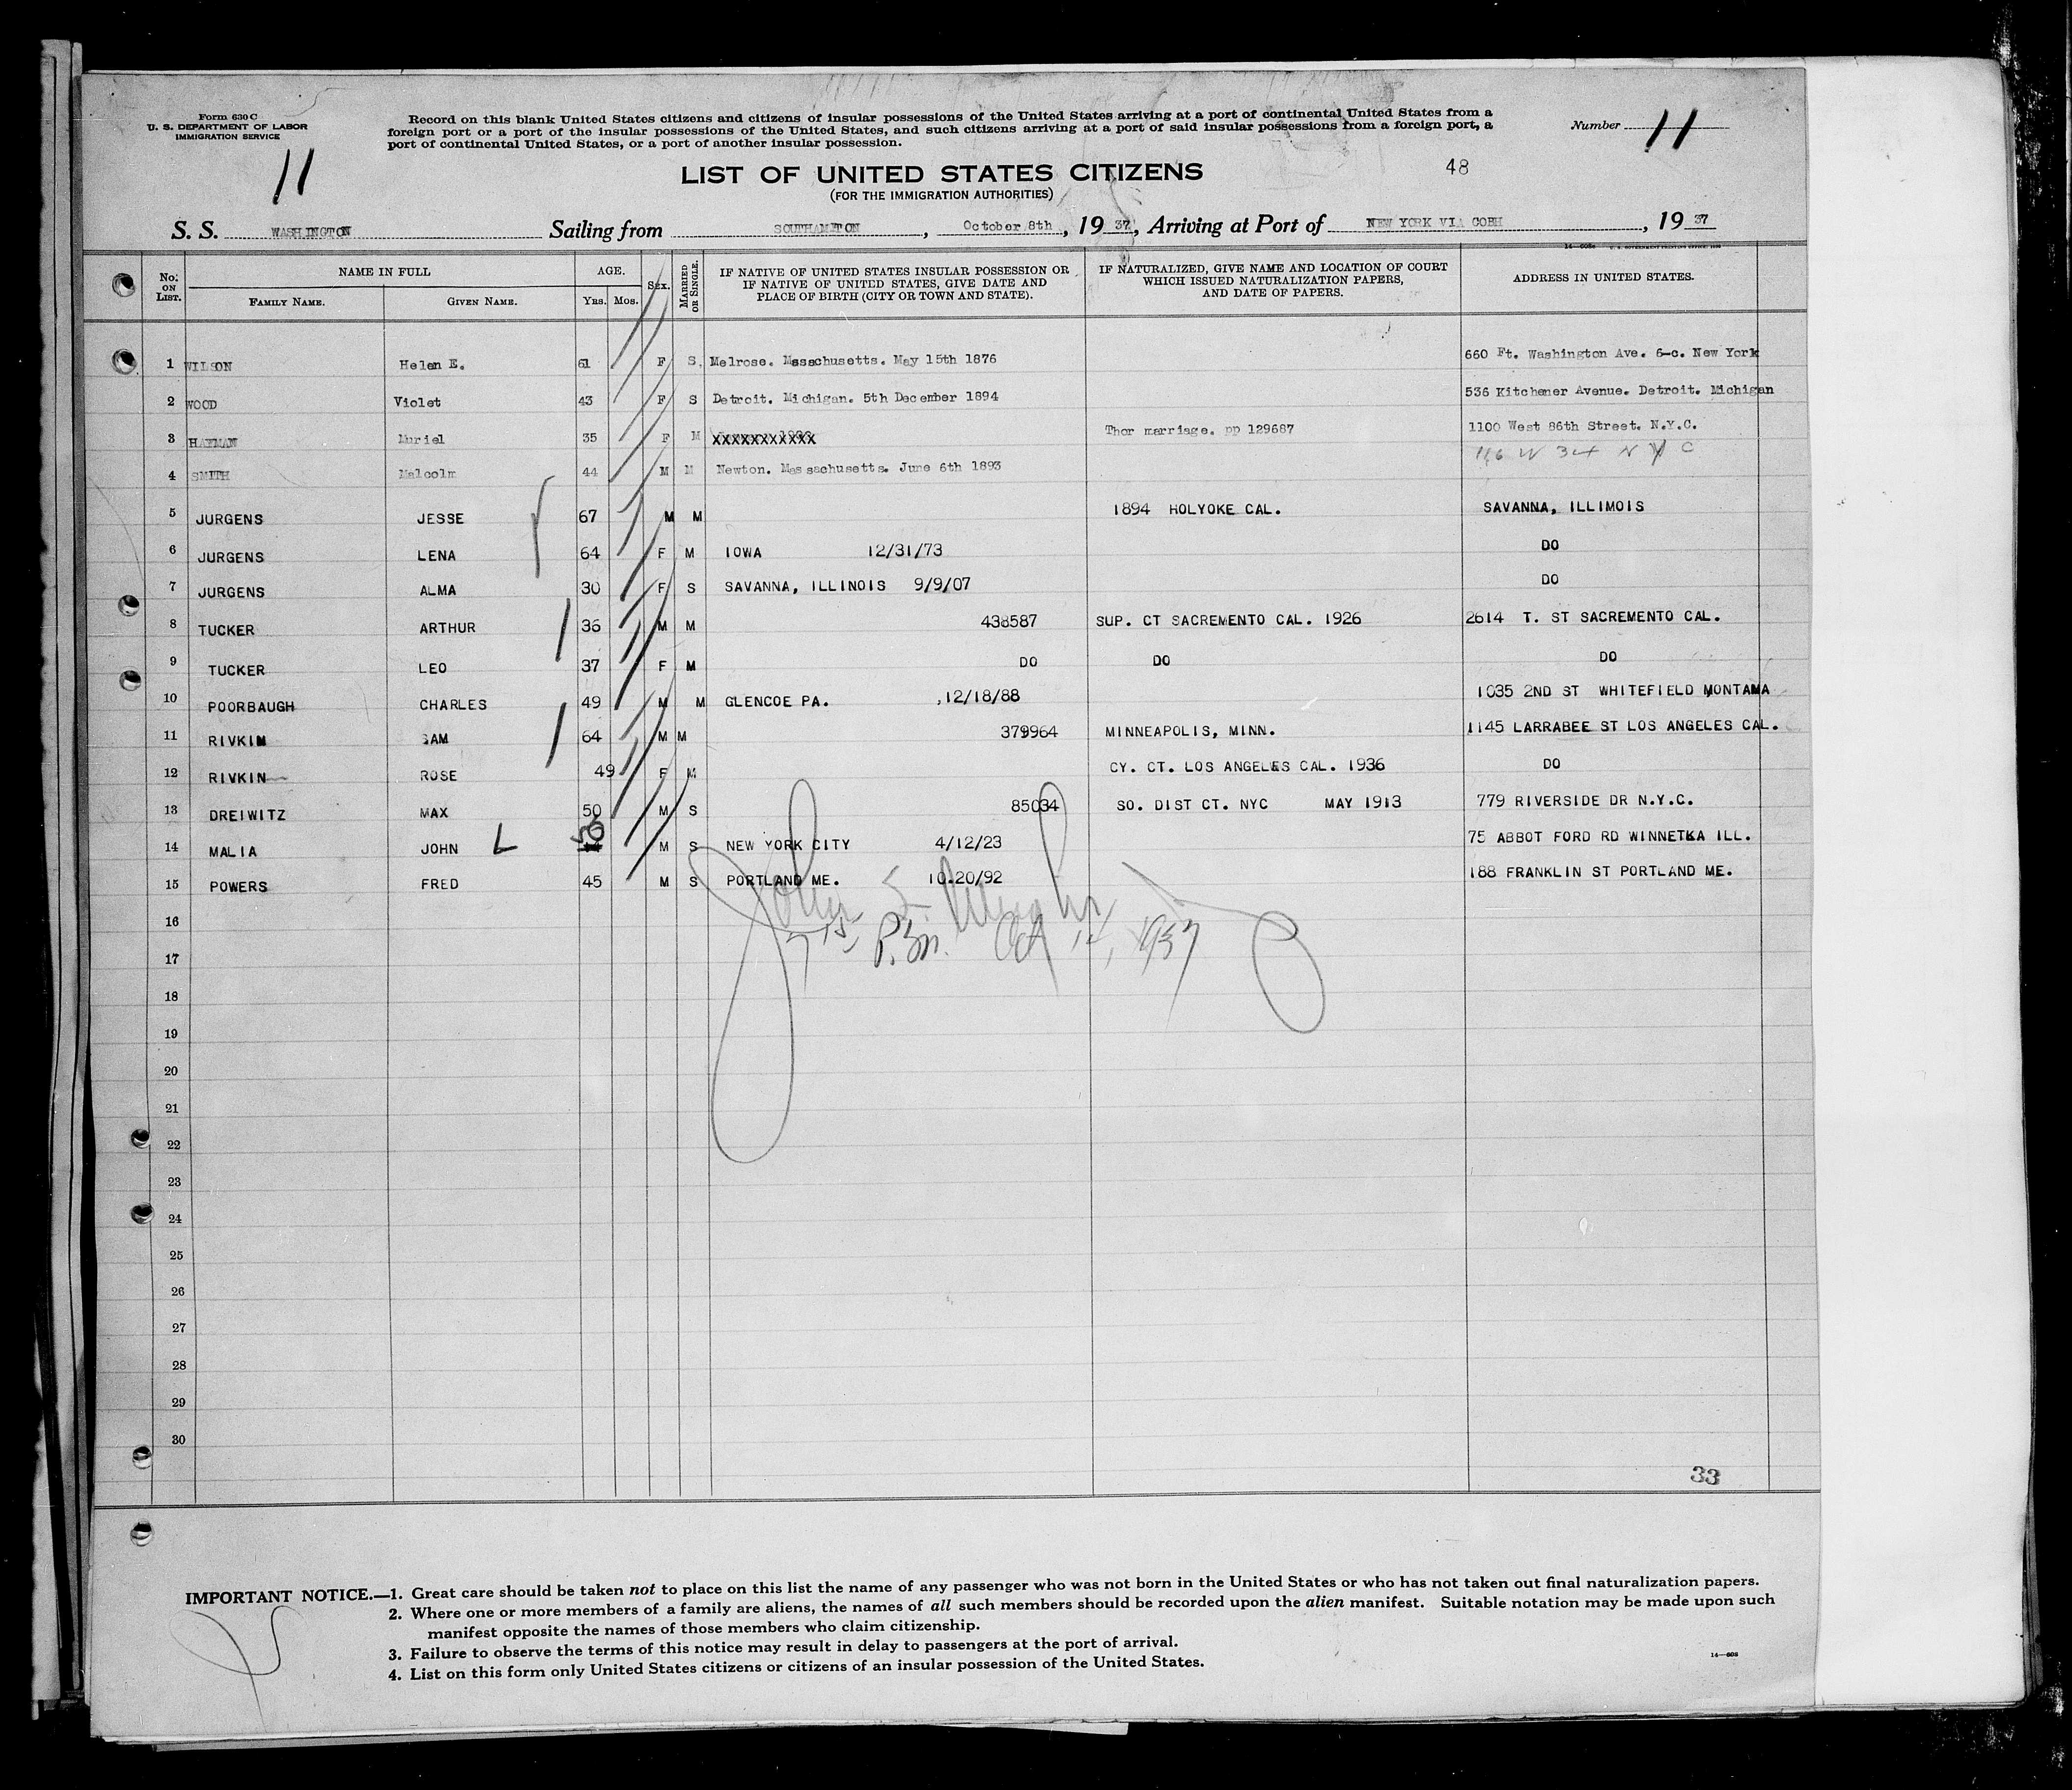 Form 630 C
U. S. DEPARTMENT OF LABOR
IMMIGRATION SERVICE
11
Record on this blank United States citizens and citizens of insular possessions of the United States arriving at a port of continental United States from a
foreign port or a port of the insular possessions of the United States, and such citizens arriving at a port of said insular possessions from a foreign port, a
port of continental United States, or a port of another insular possession.
Number 11
48
LIST OF UNITED STATES CITIZENS
(FOR THE IMMIGRATION AUTHORITIES)
S. S. WASHINGTON Sailing from SOUTHAMPTON, October 8th, 19 37, Arriving at Port of NEW YORK VIA COBH, 19 37
No. ON LIST. NAME IN FULL FAMILY NAME. GIVEN NAME. AGE. Yrs. Mos. Sex. MARRIED OR SINGLE. IF NATIVE OF UNITED STATES INSULAR POSSESSION OR IF NATIVE OF UNITED STATES, GIVE DATE AND PLACE OF BIRTH (CITY OR TOWN AND STATE). IF NATURALIZED, GIVE NAME AND LOCATION OF COURT WHICH ISSUED NATURALIZATION PAPERS, AND DATE OF PAPERS. ADDRESS IN UNITED STATES.
1 WILSON Helen E. 61 F S. Melrose. Massachusetts. May 15th 1876 660 Ft. Washington Ave. 6-c. New York
2 WOOD Violet 43 F S Detroit. Michigan. 5th December 1894 536 Kitchener Avenue. Detroit. Michigan
3 HAYMAN Muriel 35 F M XXXXXXXXXXX Thor marriage. pp 129687 1100 West 86th Street. N.Y.C.
116 W 34 N Y C
4 SMITH Malcolm 44 M M Newton. Massachusetts. June 6th 1893
5 JURGENS JESSE 67 M M 1894 HOLYOKE CAL. SAVANNA, ILLIMOIS
6 JURGENS LENA 64 F M IOWA 12/31/73 DO
7 JURGENS ALMA 30 F S SAVANNA, ILLINOIS 9/9/07 DO
8 TUCKER ARTHUR 36 M M 438587 SUP. CT SACREMENTO CAL. 1926 2614 T. ST SACREMENTO CAL.
9 TUCKER LEO 37 F M DO DO DO
10 POORBAUGH CHARLES 49 M M GLENCOE PA. ,12/18/88 1035 2ND ST WHITEFIELD MONTAMA
11 RIVKIM SAM 64 M M 379964 MINNEAPOLIS, MINN. 1145 LARRABEE ST LOS ANGELES CAL.
12 RIVKIN ROSE 49 F M CY. CT. LOS ANGELES CAL. 1936 DO
13 DREIWITZ MAX 50 M S 85034 SO. DIST CT. NYC MAY 1913 779 RIVERSIDE DR N.Y.C.
14 MALIA JOHN L M S NEW YORK CITY 4/12/23 75 ABBOT FORD RD WINNETKA ILL.
15 POWERS FRED 45 M S PORTLAND ME. 10.20/92 188 FRANKLIN ST PORTLAND ME.
16
John
P.M. Oct 14, 1937
17
18
19
20
21
22
23
24
25
26
27
28
29
30
33
IMPORTANT NOTICE.—1. Great care should be taken not to place on this list the name of any passenger who was not born in the United States or who has not taken out final naturalization papers.
2. Where one or more members of a family are aliens, the names of all such members should be recorded upon the alien manifest. Suitable notation may be made upon such
manifest opposite the names of those members who claim citizenship.
3. Failure to observe the terms of this notice may result in delay to passengers at the port of arrival.
4. List on this form only United States citizens or citizens of an insular possession of the United States.